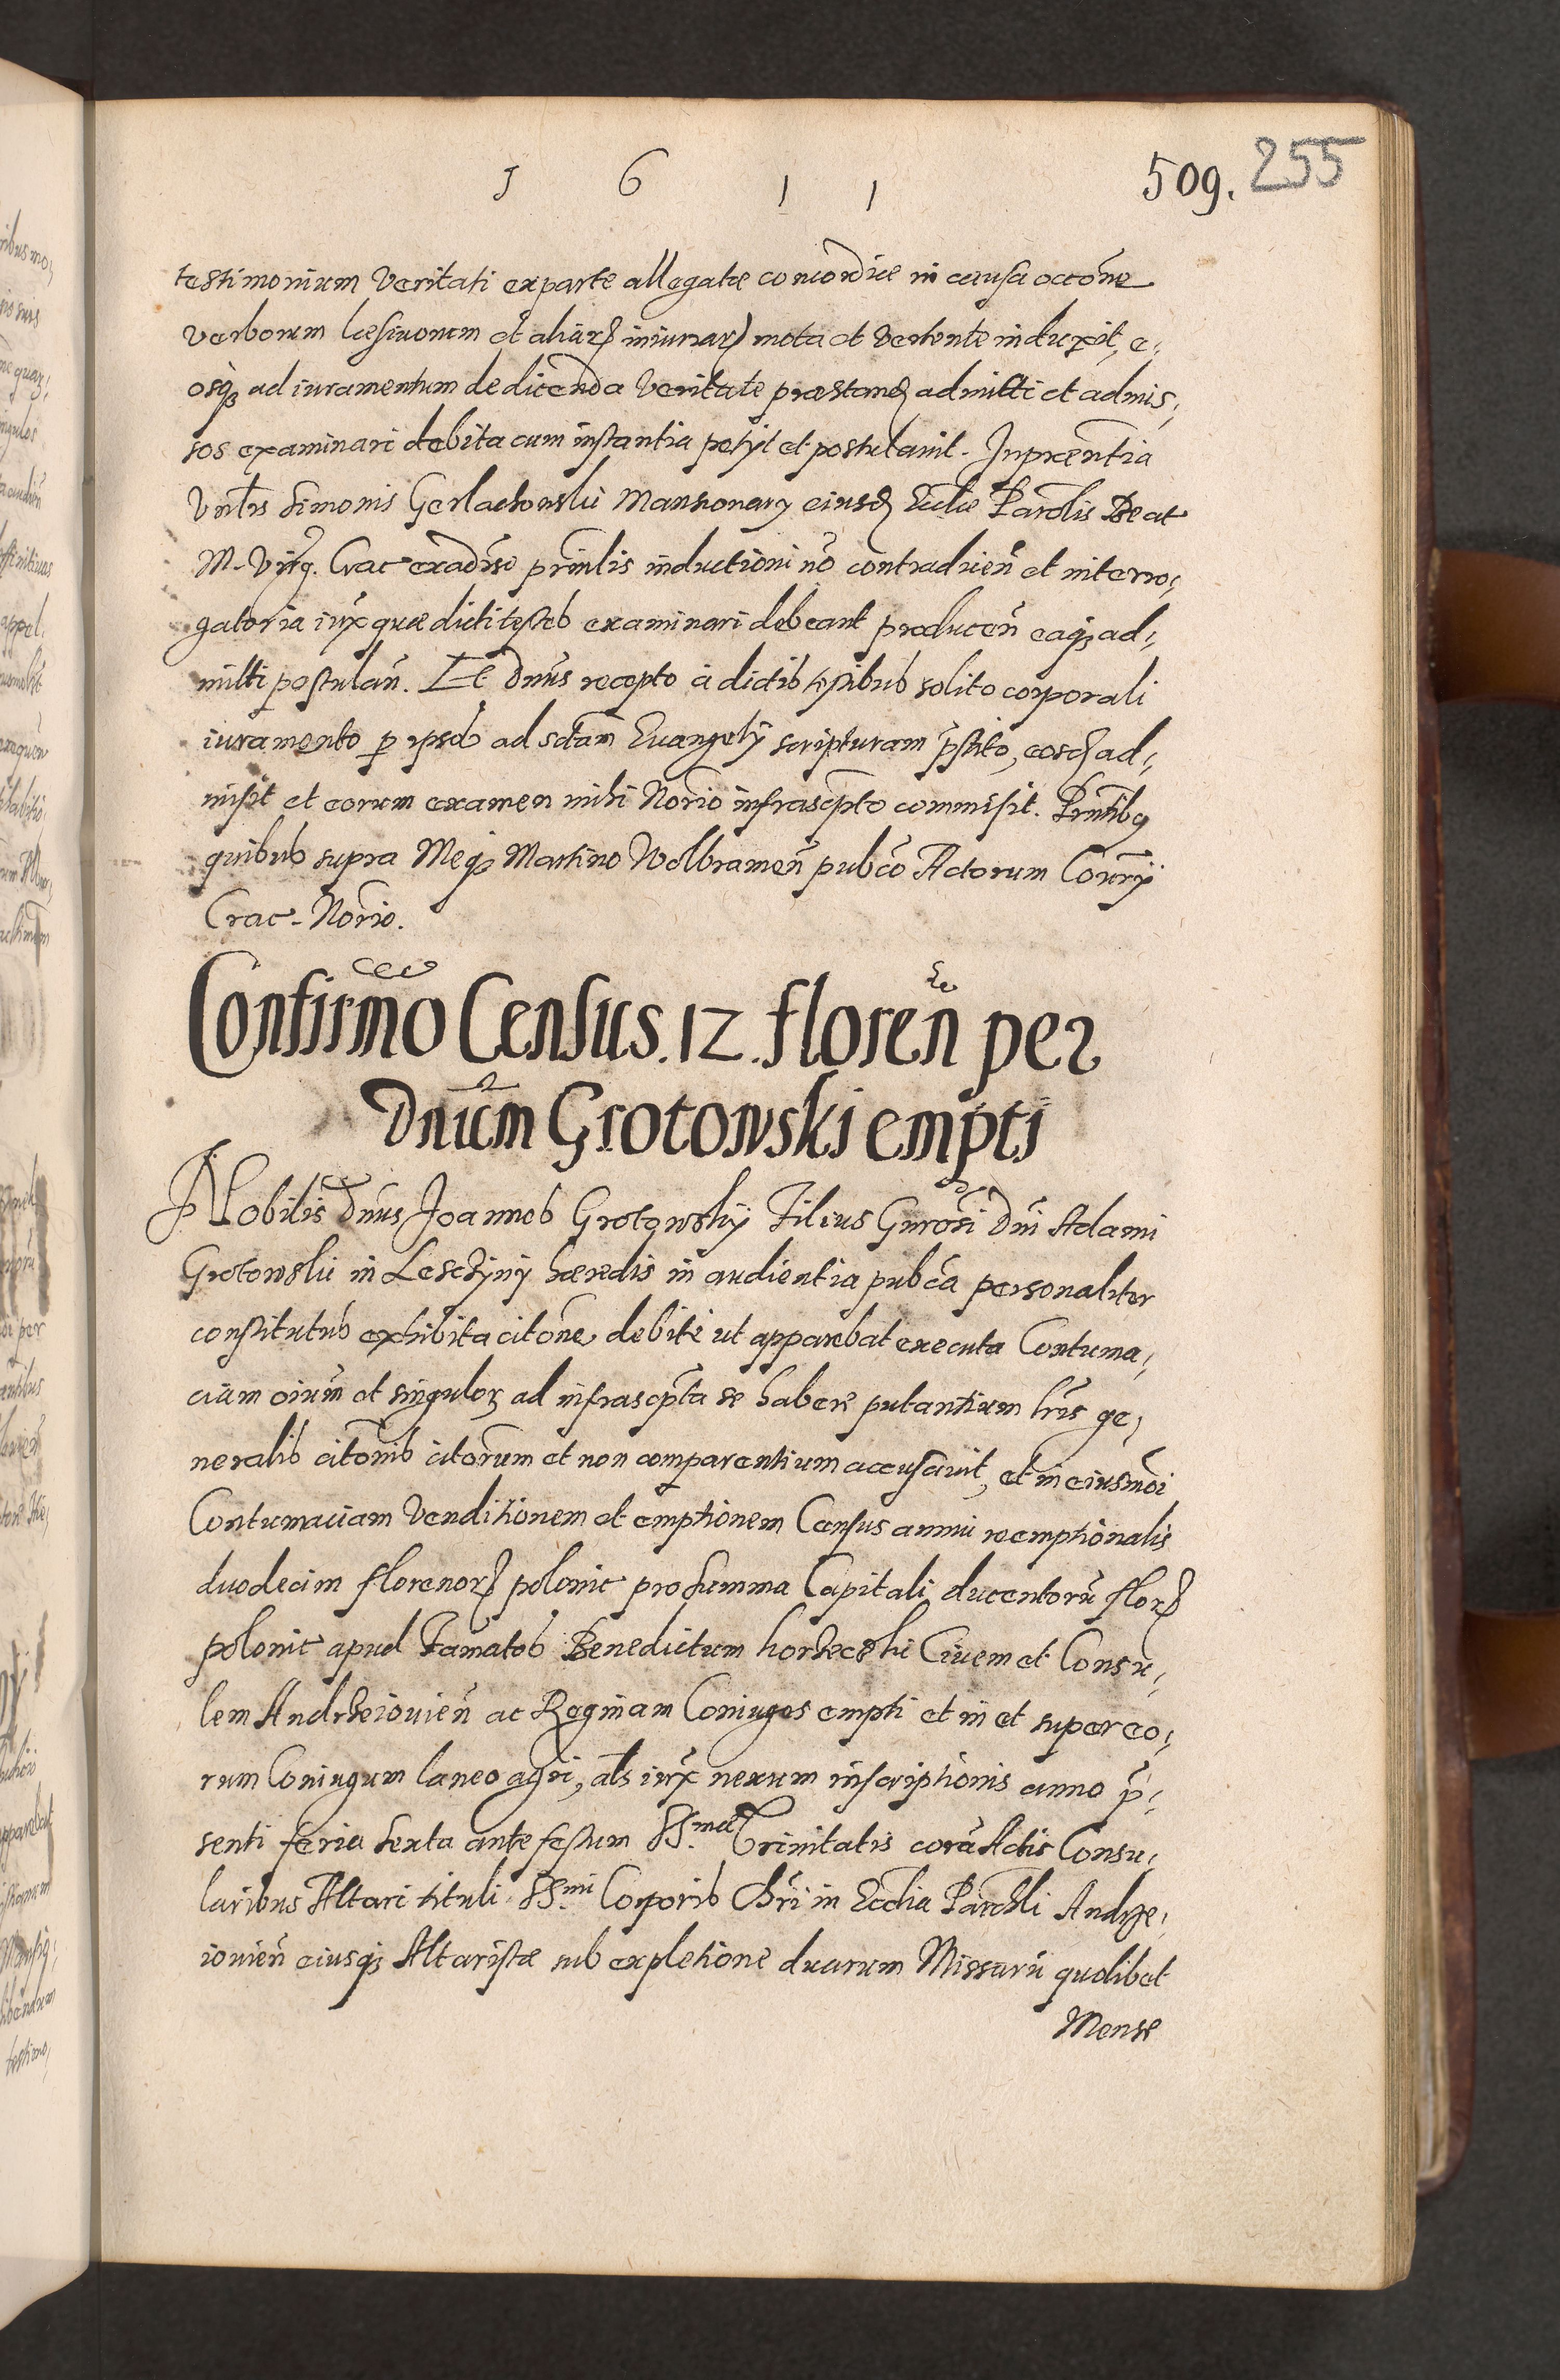 1 6 1 1
509. 255
testimonium Veritati ex parte allegatæ concordiæ in causa occone
verborum læsivorum et aliarz iniuriarz mota et vertente induxit, e,
osqz ad iuramentum de dicenda veritate præstand admitti et admis,
sos examinari debita cum instantia petyt et postulavit. In præntia
Vnlis Simonis Gerlachowski Mansionary eiusd Eccliæ Parolis Beat
M. Virg. Crac ex adverso prinlis inductioni no contradicen et interro,
gatoria iux quæ dicti testes examinari debeant producen eaqz ad,
mitti postulan. Et Dnus recepto a dictis testibus solito corporali
iuramento p ipsos ad sctam Evangely scripturam pstito, eosd ad,
misit et eorum examen mihi Norio infrascpto commisit. Prntibg
quibus supra Meqz Martino Wolbramen pubco Actorum Conrÿ
Crac. Norio.
Confirmo Census. 12. floren per
Dnum Grotowski empti
Nobilis Dnus Joannes Grotowskÿ Filius Gnrosi Dni Adami
Grotowski in Leschyny hæredis in audientia pubca personaliter
constitutus exhibita citone debite ut apparebat executa Contuma,
ciam oium et singulorz ad infrascpta se habere putantium lris ge,
neralib citonib citorum et non comparentium accusavit, et in eiusmoi
Contumaciam venditionem et emptionem Census annui reemptionalis
duodecim florenorz polonic pro summa Capitali ducentoru florz
polonic apud Famatos Benedictum Civem et Consu,
lem Andrzeiovien ac Reginam Coniuges empti et in et super eo,
rum Coniugum laneo agri, als iux nexum inscriptionis anno p,
senti feria Sexta ante festum SS.mæ Trinitatis cora Actis Consu,
laribus Altari tituli SS.mi Corporis Chri in Ecclia Parochli Andrze,
iovien eiusqz Altaristæ sub expletione duarum Missaru quolibet
Mense